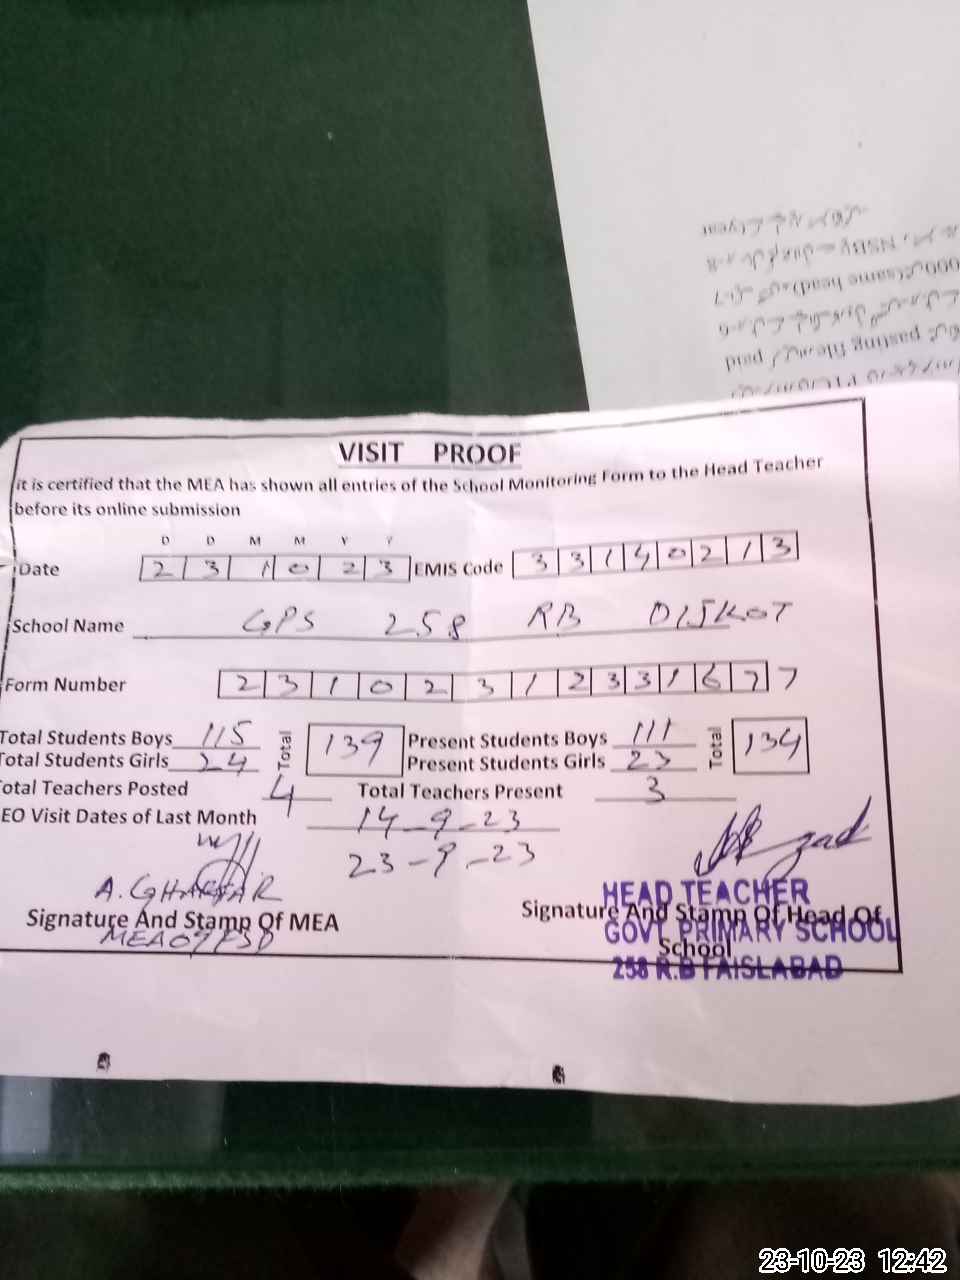 VISIT PROOF
it is certified that the MEA has shown all entries of the School Monitoring Form to the Head Teacher
before its online submission
D D M M Y Y
Date 2 3 1 0 2 3 EMIS Code 3 3 1 4 0 2 1 3
School Name GPS 258 RB DIJKOT
Form Number 2 3 1 0 2 3 1 2 3 3 1 6 7 7
Total Students Boys 115 Total 139 Present Students Boys 111 Total 134
Total Students Girls 24 Present Students Girls 23
Total Teachers Posted 4 Total Teachers Present 3
EO Visit Dates of Last Month 14-9-23
23-9-23
A. GHAFFAR
Signature And Stamp Of MEA
MEA 09 FSD
HEAD TEACHER
Signature And Stamp Of Head Of
School
GOVT. PRIMARY SCHOOL
258 R.B FAISLABAD
23-10-23 12:42